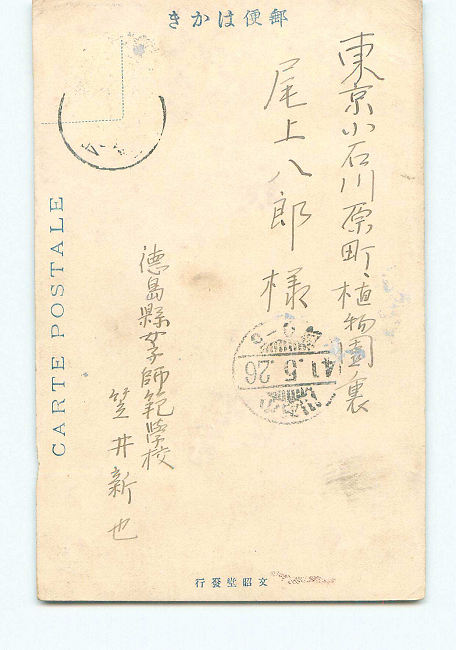 郵便はかき
東京小石川原町植物園裏
尾上八郎様
徳島縣女子師範学校
笠井新也
CARTE POSTALE
41.5.26
文昭堂發行